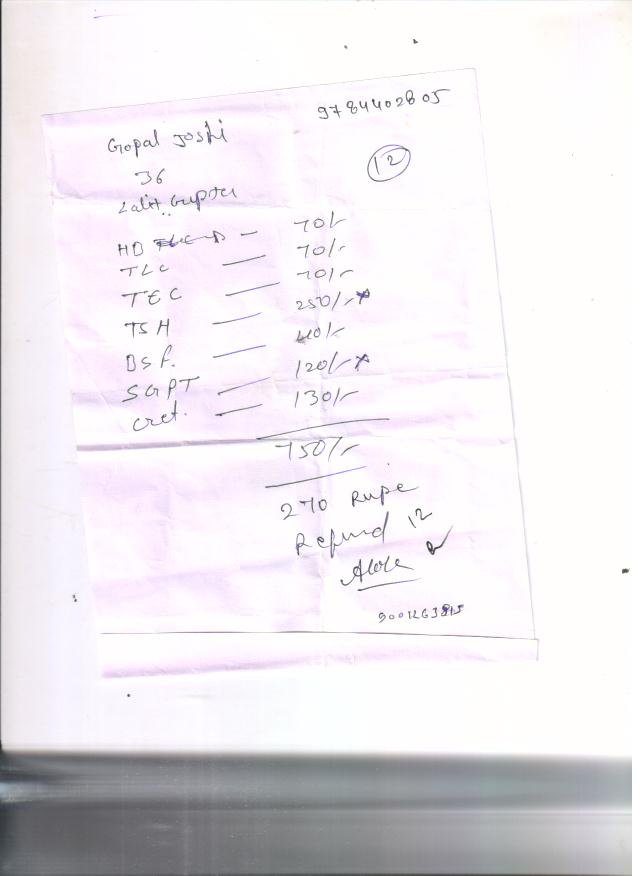 9784402805
Gopal Joshi
12
36
Lalit Gupta
HB - 70/-
TLC — 70/-
TEC — 70/-
TSH — 250/- x
BSf. — 40/-
SGPT — 120/- x
Cret. — 130/-
750/-
270 Rupe
Refund 12